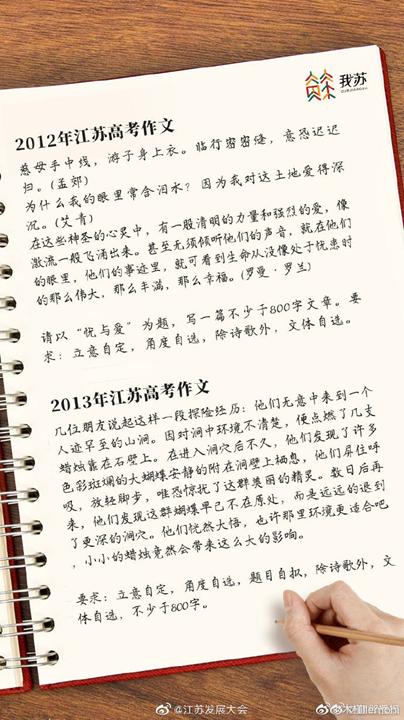 我苏
2012年江苏高考作文
慈母手中线，游子身上衣。临行密密缝，意恐迟迟
归。(孟郊)
为什么我的眼里常含泪水？因为我对这土地爱得深
沉。(艾青)
在这些神圣的心灵中，有一股清明的力量和强烈的爱，像
激流一般飞涌出来。甚至无须倾听他们的声音，就在他们
的眼里，他们的事迹里，就可看到生命从没像处于忧患时
的那么伟大，那么丰满，那么幸福。(罗曼·罗兰)
请以“忧与爱”为题，写一篇不少于800字文章。要
求：立意自定，角度自选，除诗歌外，文体自选。
2013年江苏高考作文
几位朋友说起这样一段探险经历：他们无意中来到一个
人迹罕至的山洞。因对洞中环境不清楚，便点燃了几支
蜡烛靠在石壁上。在进入洞穴后不久，他们发现了许多
色彩斑斓的大蝴蝶安静的附在洞壁上栖息，他们屏住呼
吸，放轻脚步，唯恐惊扰了这群美丽的精灵。数日后再
来，他们发现这群蝴蝶早已不在原处，而是远远的退到
了更深的洞穴。他们恍然大悟，也许那里环境更适合吧
，小小的蜡烛竟然会带来这么大的影响。
要求：立意自定，角度自选，题目自拟，除诗歌外，文
体自选，不少于800字。
@江苏发展大会